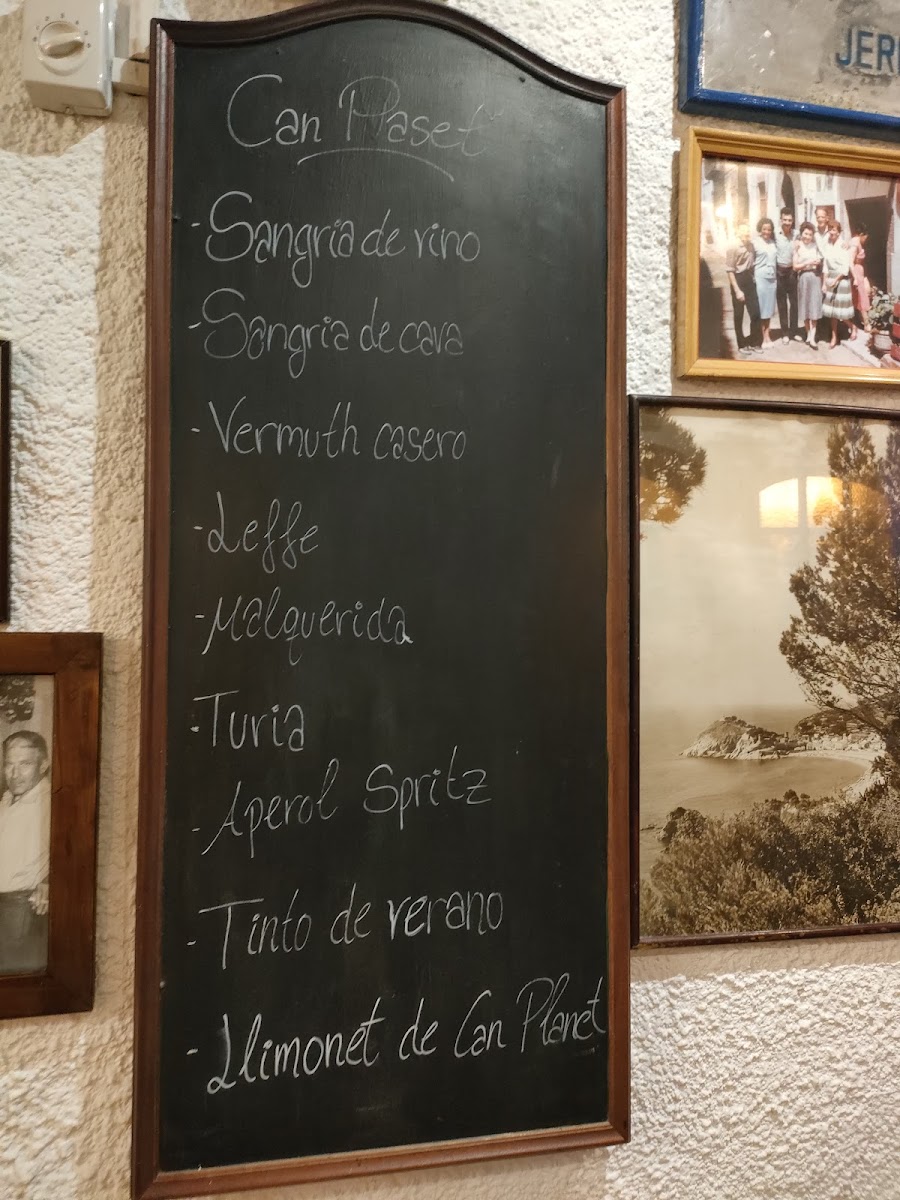 Can Plaset
- Sangria de vino
- Sangria de cava
- Vermuth casero
- Leffe
- Malquerida
- Turia
- Aperol Spritz
- Tinto de verano
- Llimonet de Can Planet
JER